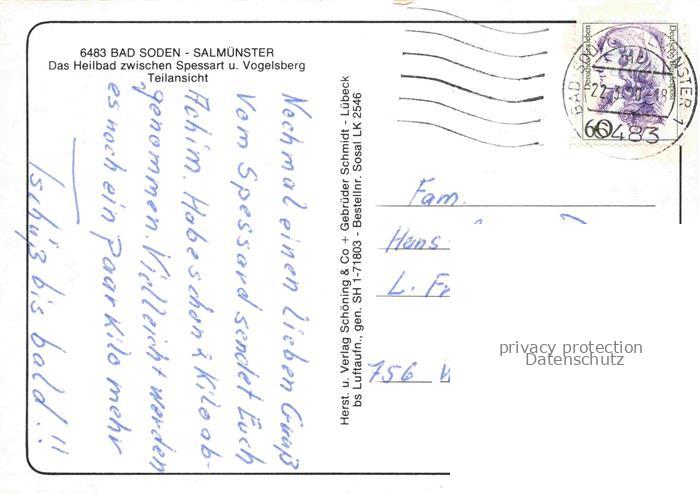 6483 BAD SODEN - SALMÜNSTER
Das Heilbad zwischen Spessart u. Vogelsberg
Teilansicht
Nochmal einen lieben Gruß
Vom Spessard sendet Euch
Achim. Habe schon 2 Kilo ab-
genommen. Vielleicht werden
es noch ein Paar Kilo mehr
Tschüß bis bald!!
Herst. u. Verlag Schöning & Co + Gebrüder Schmidt - Lübeck
bs Luftaufn., gen. SH 1-71803 - Bestellnr. Sosal LK 2546
60
6483
Fam.
Hans
L.
756
privacy protection
Datenschutz